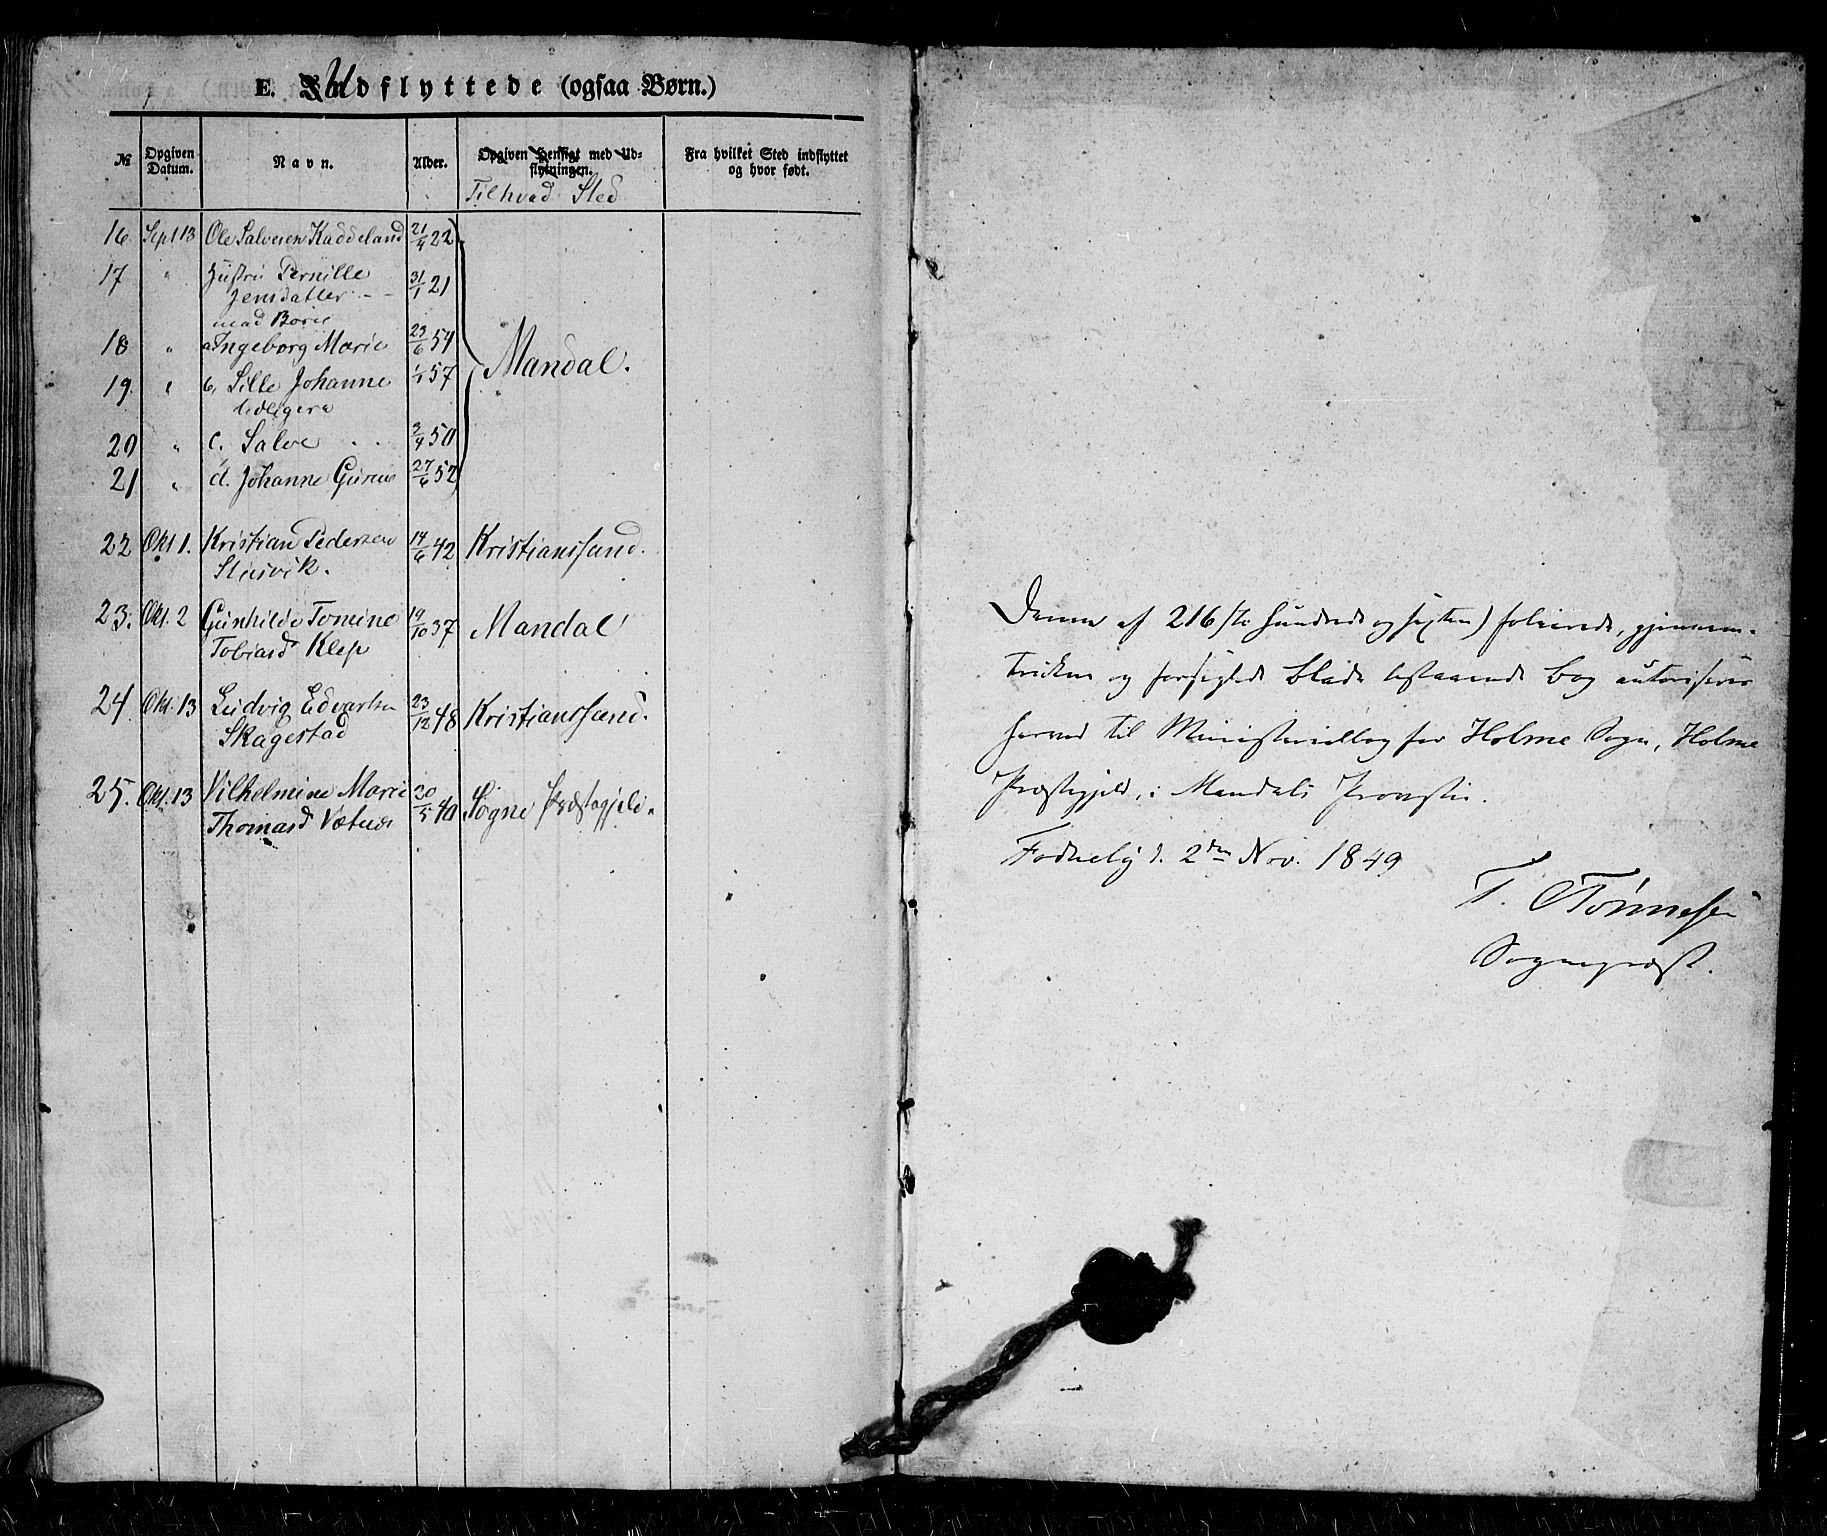 E. Udflyttede (ogsaa Børn.)
№ Opgiven Datum. Navn. Alder. Opgiven Hensigt med Ud- Fra hvilket Sted indflyttet
flytningen. og hvor født.
Til hvad Sted
16 Sept 13 Ole Salvesen Kaddeland 21/4 22
17 " Hustru Pernille 31/1 21
Jensdatter
med Børn
18 " a Ingeborg Marie 23/6 54 Mandal.
19. " b, Sille Johanne 1/1 57
20 " c. Salve 3/4 50
21 " d. Johanne Gurine 27/6 52
22 Okt 1. Kristian Pedersen 14/6 42 Kristianssand.
Stusvik.
23. Okt. 2 Gunhilde Tomine 19/10 37 Mandal
Tobiasd Klep
24 Okt. 13 Ludvig Edvartsen 23/12 48 Kristianssand.
Skagestad
25. Okt. 13 Vilhelmine Marie 30/5 40 Søgne Præstegjeld.
Thomasd
Denne af 216 /to Hundrede og sexten) folierede, gjennem-
trukne og forseglede Blade bestaaende Bog autoriseres
herved til Ministerialbog for Holme Sogn, Holme
Præstegjeld, i Mandals Provsti.
d. 2den Nov. 1849
T. Tønnesen
Sognepræst.